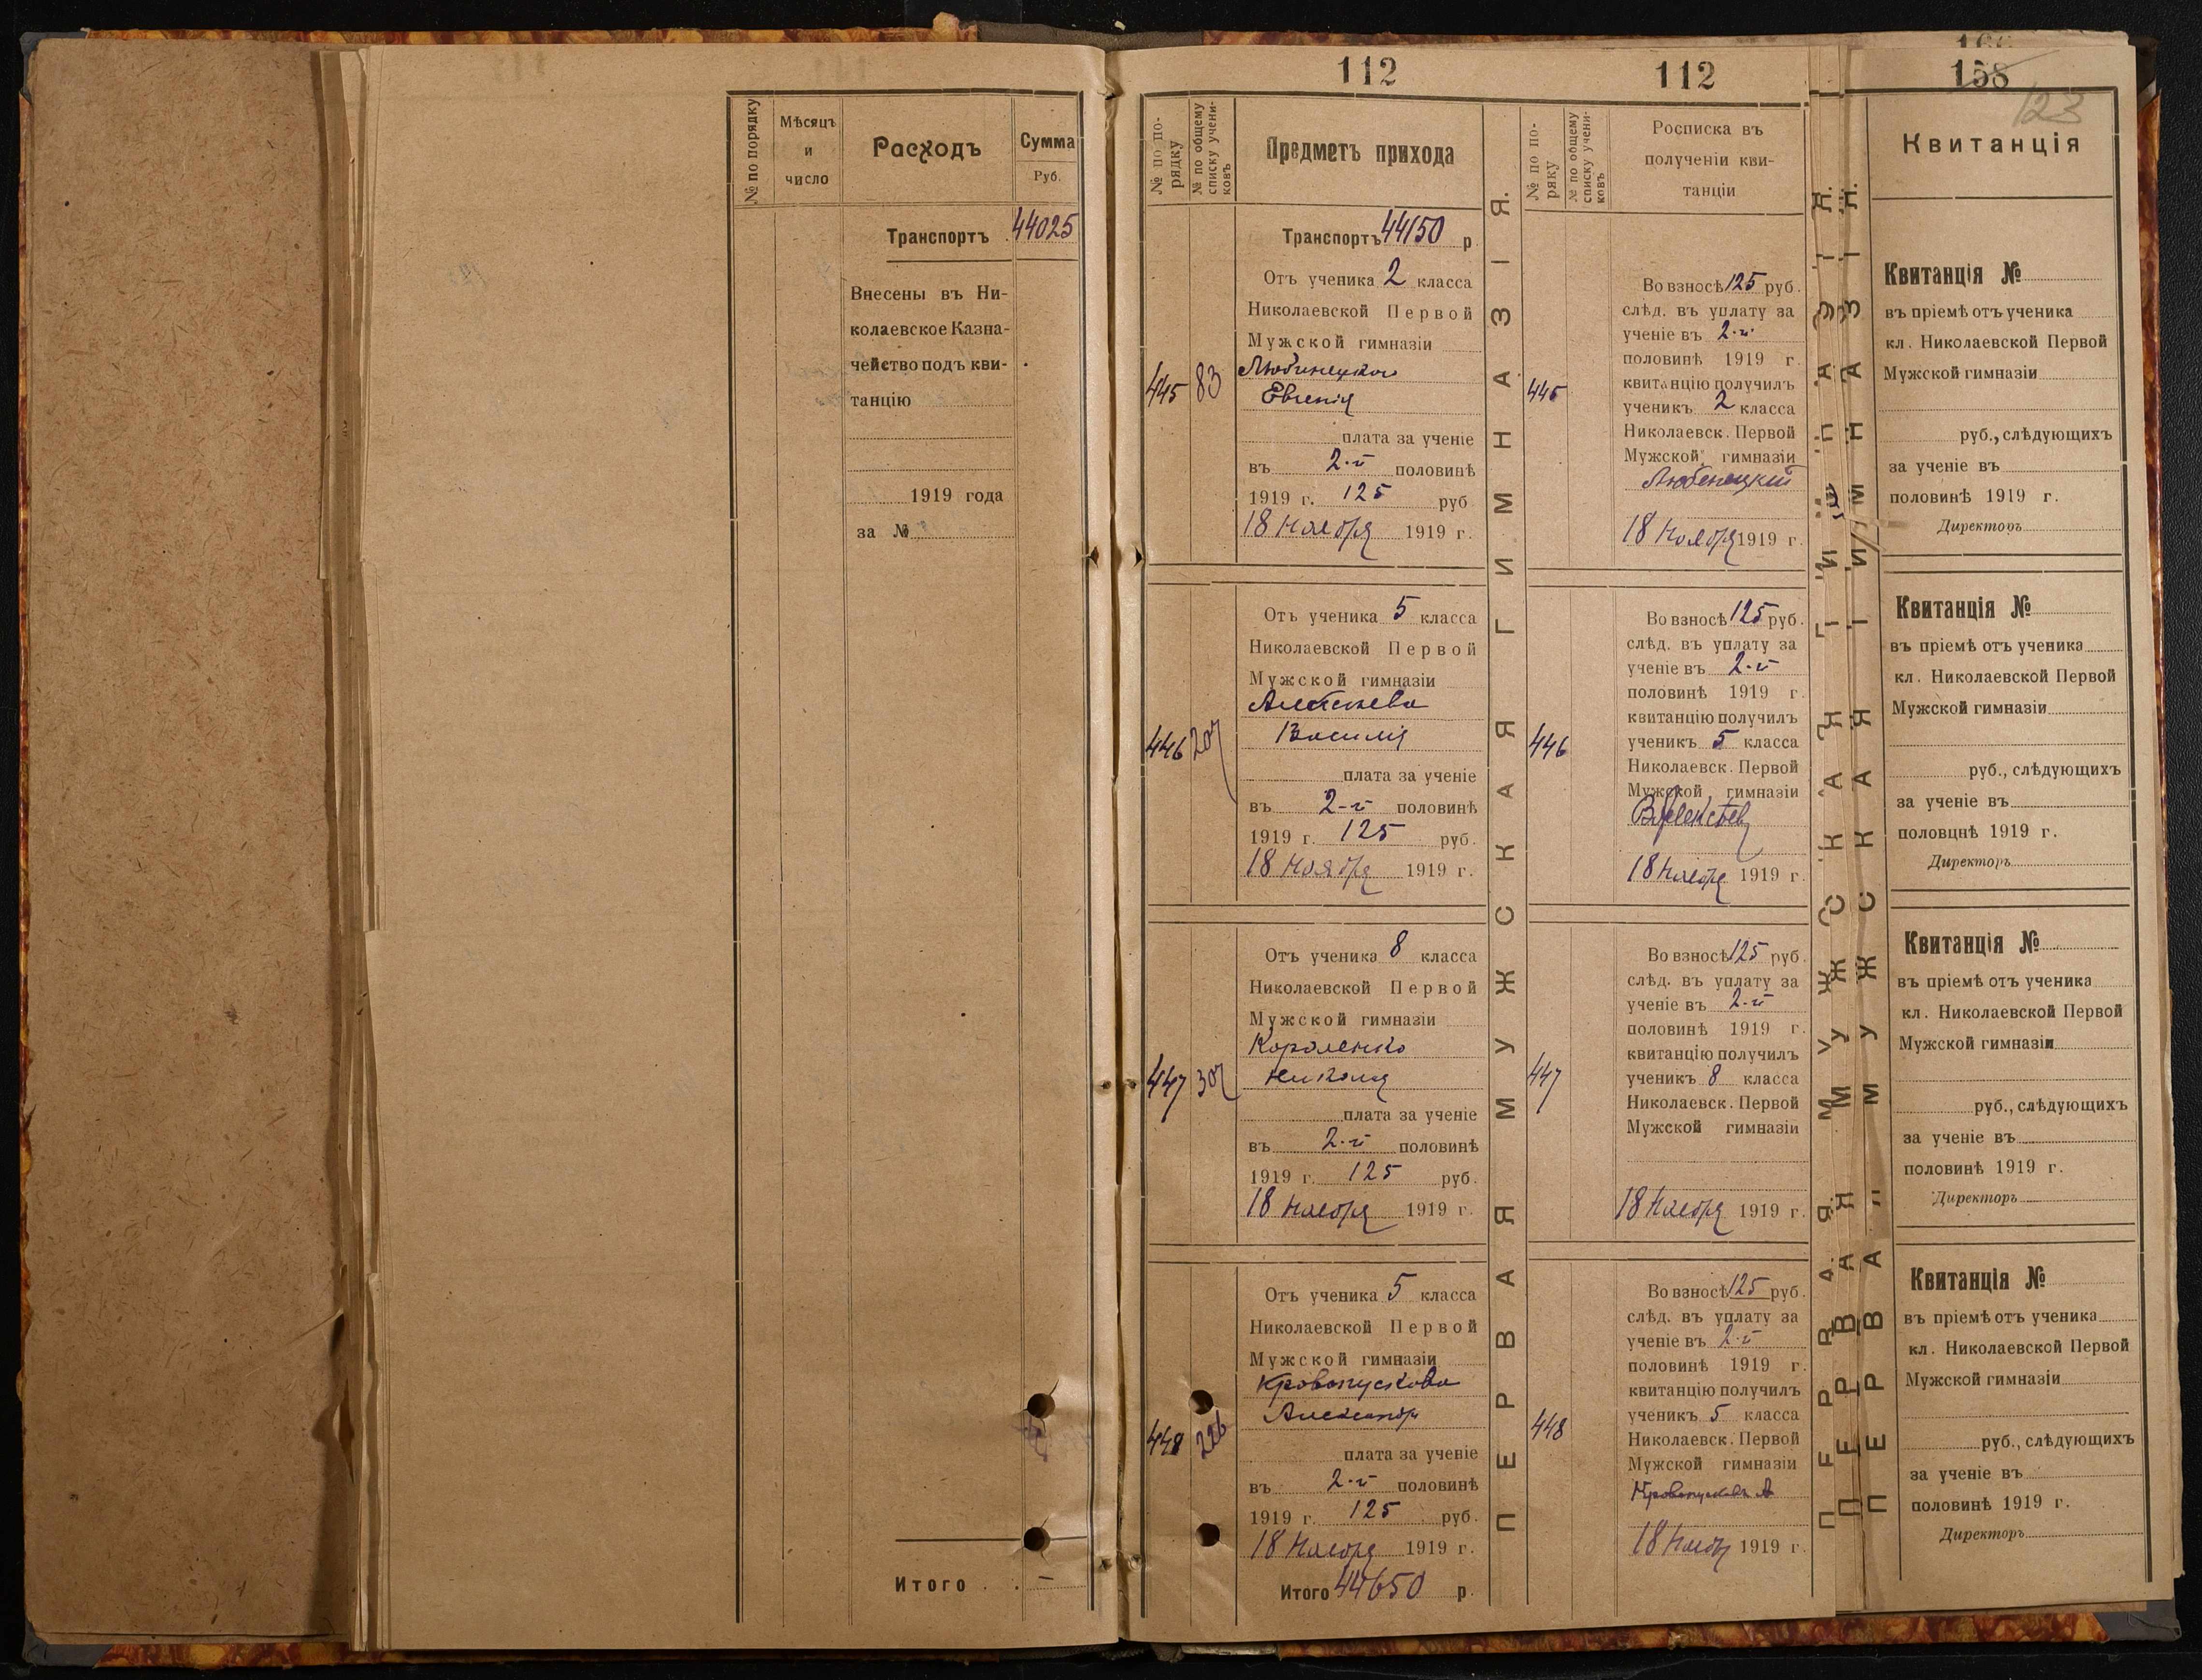 № по порядку
Мѣсяцъ
и
число
Расходъ
Сумма
Руб.
Транспортъ 44025
Внесены въ Ни-
колаевское Казна-
чейство подъ кви-
танцію
1919 года
за №
Итого —
112
№ по по-
рядку
№ по общему
списку учени-
ковъ
Предметъ прихода
Транспортъ 44150 р
Отъ ученика 2 класса
Николаевской Первой
Мужской гимназіи
Любинецкого
445 83
Евгенія
плата за ученіе
въ 2-й половинѣ
1919 г. 125 руб
18 Ноября 1919 г.
Отъ ученика 5 класса
Николаевской Первой
Мужской гимназіи
Алексѣева
446 207
Василія
плата за ученіе
въ 2-й половинѣ
1919 г. 125 руб.
18 Ноября 1919 г.
Отъ ученика 8 класса
Николаевской Первой
Мужской гимназіи
Короленко
447 307
Николая
плата за ученіе
въ 2-й половинѣ
1919 г. 125 руб.
18 Ноября 1919 г.
Отъ ученика 5 класса
Николаевской Первой
Мужской гимназіи
Кровопускова
Александр
448 226
плата за ученіе
въ 2-й половинѣ
1919 г. 125 руб.
18 Ноября 1919 г.
Итого 44650 р.
ПЕРВАЯ МУЖСКАЯ ГИМНАЗІЯ.
112
№ по по-
ряку
№ по общему
списку учени-
ковъ
Росписка въ
полученіи кви-
танціи
Во взносѣ 125 руб.
слѣд. въ уплату за
ученіе въ 2-й
половинѣ 1919 г.
квитанцію получилъ
445
ученикъ 2 класса
Николаевск. Первой
Мужской гимназіи
Любенецкій
18 Ноября 1919 г.
Во взносѣ 125 руб.
слѣд. въ уплату за
ученіе въ 2-й
половинѣ 1919 г.
квитанцію получилъ
446
ученикъ 5 класса
Николаевск. Первой
Мужской гимназіи
В Алексѣев
18 Ноября 1919 г.
Во взносѣ 125 руб.
слѣд. въ уплату за
ученіе въ 2-й
половинѣ 1919 г.
квитанцію получилъ
447
ученикъ 8 класса
Николаевск. Первой
Мужской гимназіи
18 Ноября 1919 г.
Во взносѣ 125 руб.
слѣд. въ уплату за
ученіе въ 2-й
половинѣ 1919 г.
квитанцію получилъ
448
ученикъ 5 класса
Николаевск. Первой
Мужской гимназіи
Кровопусковъ А
18 Нояб 1919 г.
ПЕРВАЯ МУЖСКАЯ ГИМНАЗІЯ.
ПЕРВАЯ МУЖСКАЯ ГИМНАЗІЯ.
158
123
Квитанція
Квитанція №
въ пріемѣ отъ ученика
кл. Николаевской Первой
Мужской гимназіи
руб., слѣдующихъ
за ученіе въ
половинѣ 1919 г.
Директоръ
Квитанція №
въ пріемѣ отъ ученика
кл. Николаевской Первой
Мужской гимназіи
руб., слѣдующихъ
за ученіе въ
половцнѣ 1919 г.
Директоръ
Квитанція №
въ пріемѣ отъ ученика
кл. Николаевской Первой
Мужской гимназіи
руб., слѣдующихъ
за ученіе въ
половинѣ 1919 г.
Директоръ
Квитанція №
въ пріемѣ отъ ученика
кл. Николаевской Первой
Мужской гимназіи
руб., слѣдующихъ
за ученіе въ
половинѣ 1919 г.
Директоръ